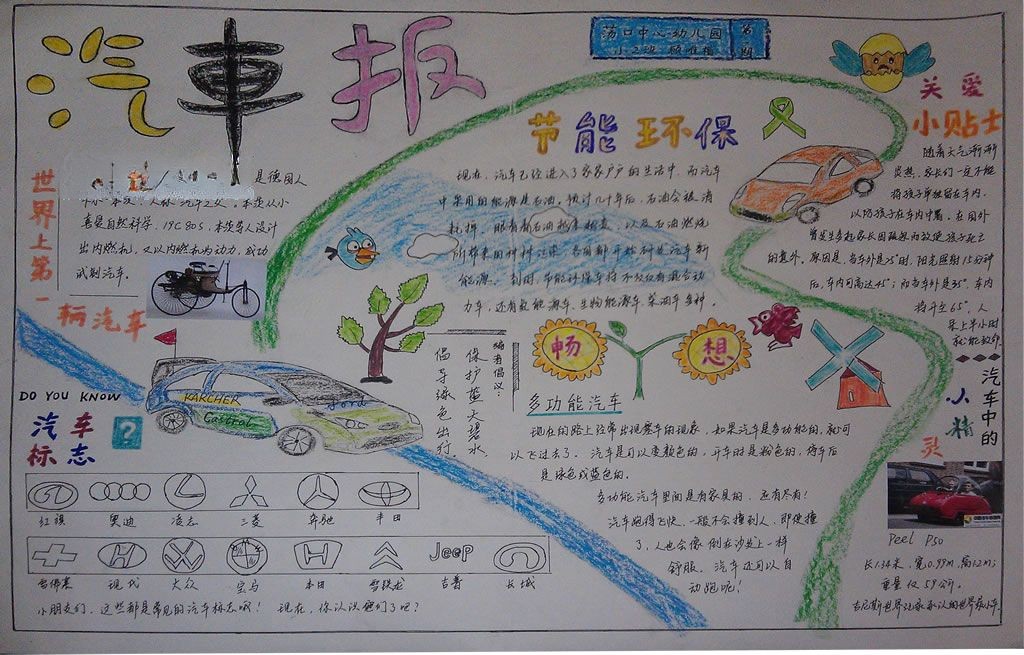 汽車报
荡口中心幼儿园
第 期
世界上第一辆汽车
是德国人
喜爱自然科学，19C80S，本茨等人设计
出内燃机，又以内燃机为动力，成功
试制汽车。
节能环保
现在，汽车已经进入了家家户户的生活中，而汽车
中采用的能源是石油。预计几十年后，石油会被消
能源。到时，节能环保车将不仅仅有混合动
力车，还有氢能源车、生物能源车、菜油车多种。
关爱
小贴士
随着天气渐渐
炎热，家长们一定不能
将孩子单独留在车内，
以防孩子在车内中暑。在国外
的意外。原因是，当车外是25°时，阳光照射15分钟
后，车内可高达45°；而当车外是35°，车内
将升至65°，人
呆上半小时
就能致命
编者倡议：
保护蓝天碧水
倡导绿色出行
畅想
多功能汽车
现在的路上经常出现塞车的现象，如果汽车是多功能的，就可
以飞过去了。汽车是可以变颜色的，开车时是粉色的，停车后
是绿色或蓝色的。
多功能汽车里面是有家具的，还有尽有！
汽车跑得飞快，一般不会撞到人，即使撞
了，人也会像倒在沙发上一样
舒服。汽车还可以自
动跑呢！
汽车中的
小精灵
Peel P50
长1.34米，宽0.99m，高1.2m；
重量仅59公斤。
吉尼斯世界纪录承认的世界最小车。
KARCHER
Castrol
Ford
DO YOU KNOW
汽车
标志
?
红旗 奥迪 凌志 三菱 奔驰 丰田
Jeep
雪佛莱 现代 大众 宝马 本田 雪铁龙 吉普 长城
小朋友们，这些都是常见的汽车标志哦！ 现在，你认识它们了吧？